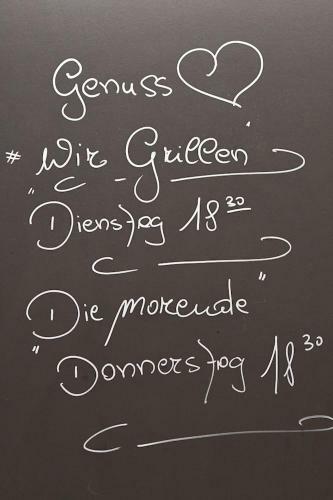 Genuss
# Wir Grillen
" Dienstag 18 30
Die Morende "
" Donnerstag 18 30